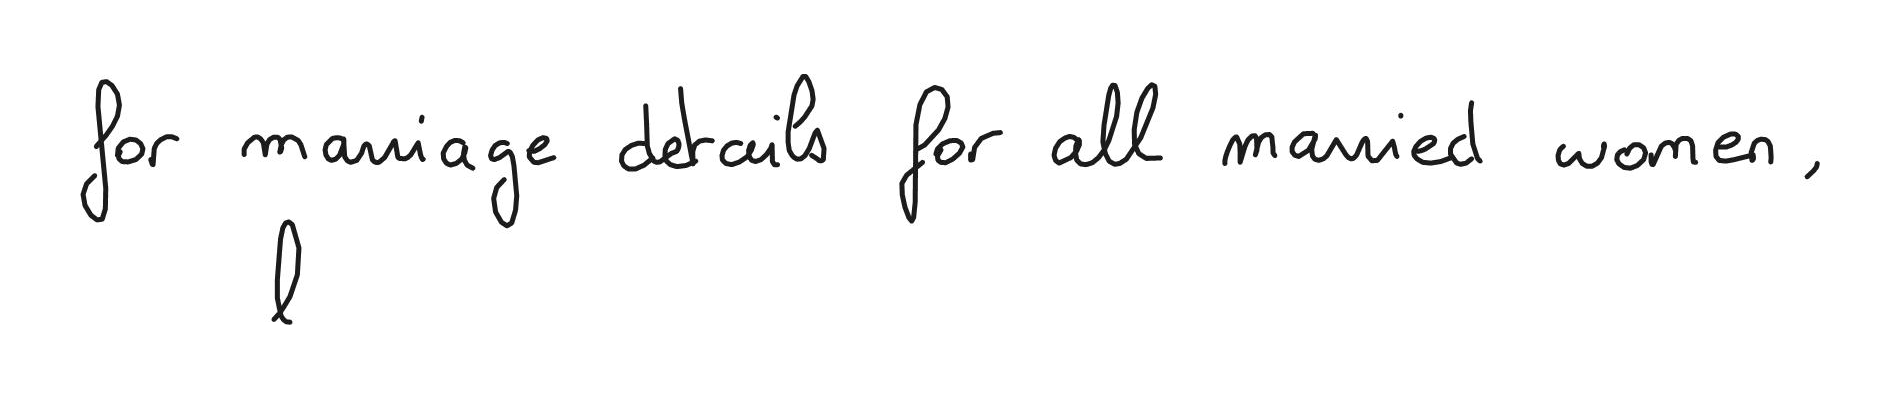 for marriage details for all married women,
l